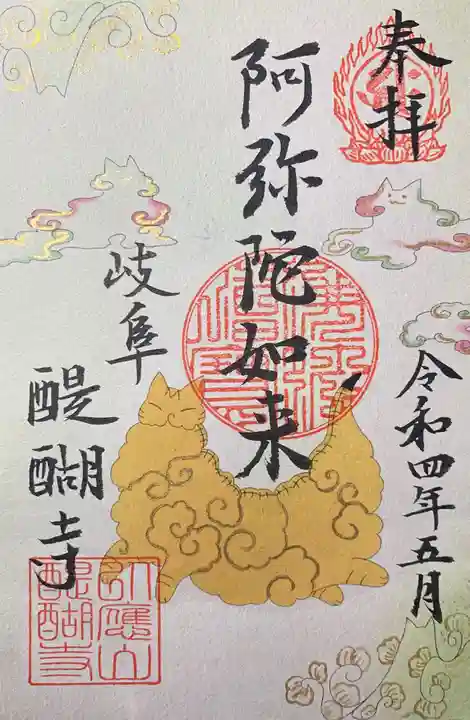 奉拝
令和四年五月
阿弥陀如来
岐阜
醍醐寺
醍醐寺